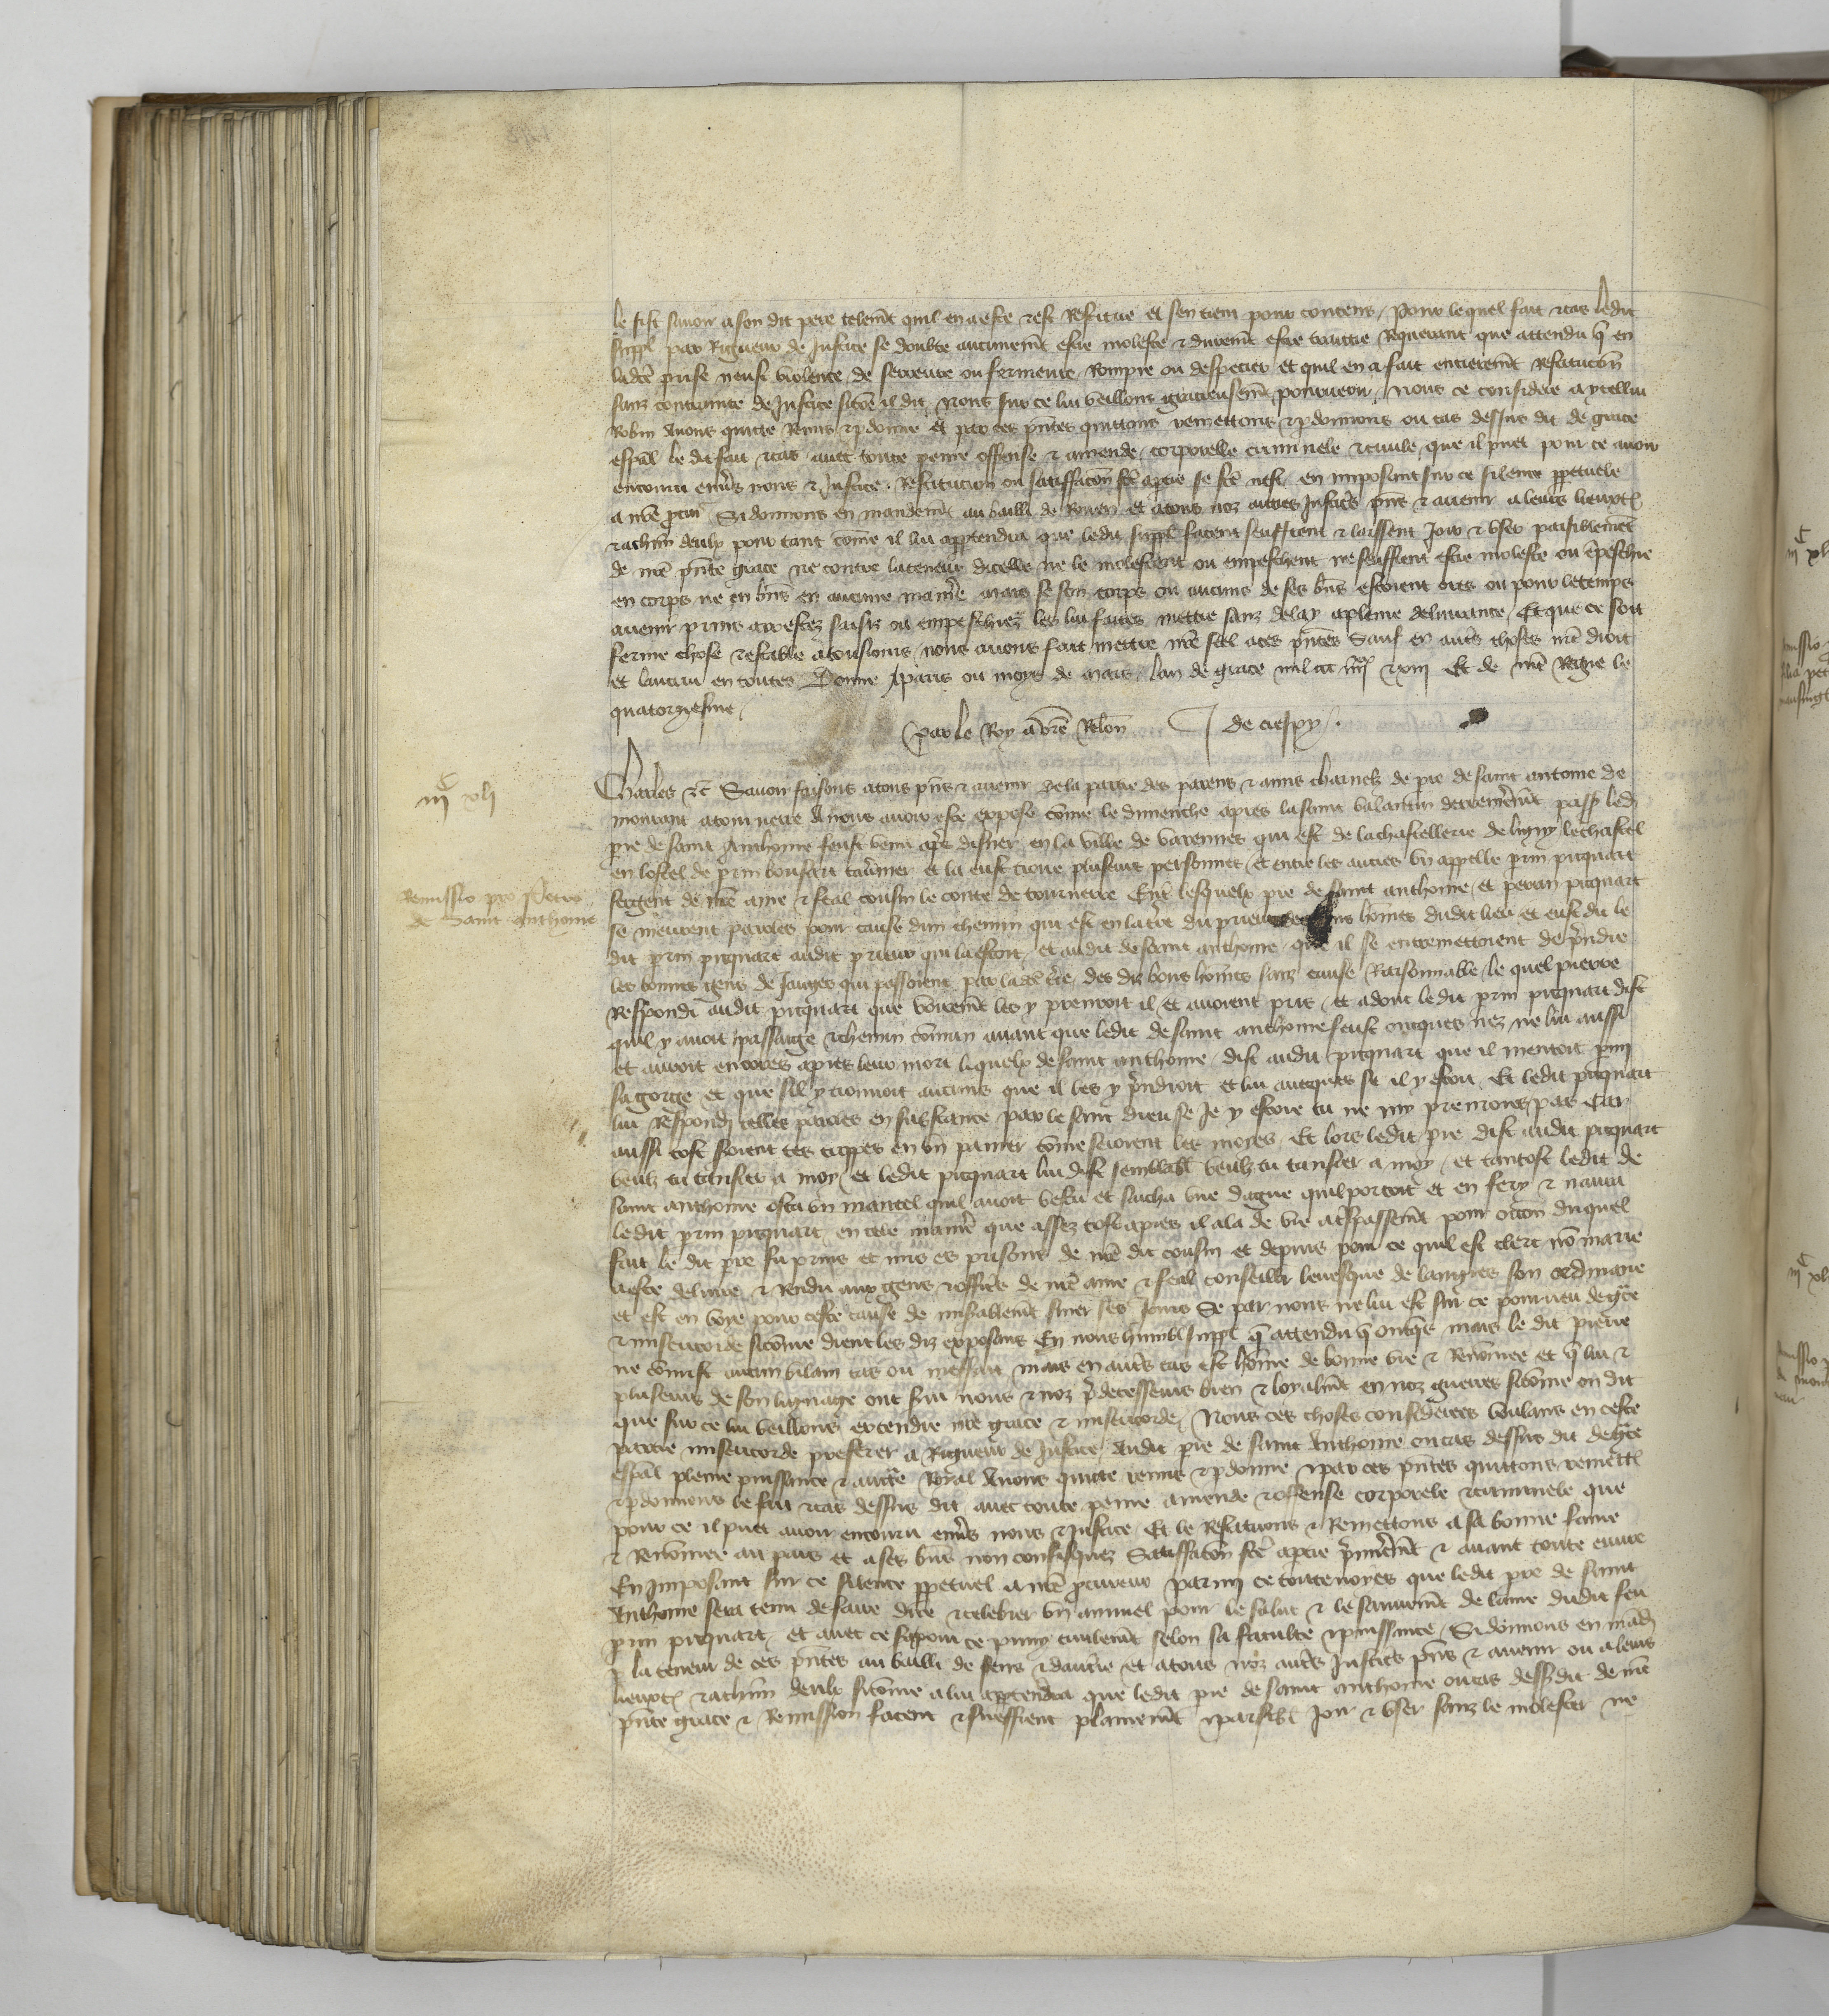 le fist savoir a son dit pere telemt quil en a este et est restitue et sen tient pour contens / Pour lequel fait et cas ledit
suppl par Rigueur de Justice se doubte aucunemt estre moleste et duremt estre traittie Requerant que attendu q en
ladce prise neust violence de serreure ou fermeure Rompre ou despecier et quil en a fait entieremt restitucon
sanz contrainte de Justice sicoe il dit Nous sur ce lui veillons gracieusemt pourveoir / Nous ce considere a ycellui
Robin Avons quitte Remis et pdonne et par ces pntes quittons remettons et pdonnons ou cas dessus dit de grace
espal le dit fait et cas avec toute peine offense et amende corporelle criminele et civile que il puet pour ce avoir
encouru envs nous et Justice . Restitucion ou satisfacon fce aptie se fce nest en imposant sur ce silence ppetuele
a nre pcur Si donnons en mandemt au bailli de Rouen et a tous noz autres Justics pns et avenir a leurs lieuxt
et a chun deulx pour tant come il lui apptendra que ledit suppl facent seuffrent et laissent Joir et user paisiblemet
de nre pnte grace ne contre la teneur dicelle ne le molestent ou empeschent ne seuffrent estre moleste ou epeschie
en corps ne en bns en aucune manre mais se son corps ou aucuns de ses bns estoient ores ou pour le temps
avenir prins arrestez saisiz ou empeschiez les lui faites mettre sanz delay a pleine delivrance / Et que ce soit
ferme chose et estable a tousiours nous avons fait mettre nre seel a ces pntes Sauf en autres choses nre droit
et lautrui en toutes Donne a paris ou moys de mars lan de grace mil ccc iiiixx et xiii Et de nre Regne le
quatorziesme /
Par le Roy a vre Relon J de crespy /.
iiic xli
Charles etc Savoir faisons a tous pns et avenir de la partie des parens et amis charnelz de pre de saint antoine de
mouvant a tonnerre A nous avoir este expose come le dimenche apres la saint valantin derrenieremt passe led
pre de saint Anthoine feust venu aps disner en la ville de varennes qui est de la chastellerie de ligny le chastel
en lostel de prin bonsart tavnier et la eust trouve pluseurs personnes / et entre les autres un appelle prin picquart
Remissio pro Petro
de Saint Anthoine
sergent de nre ame et feal cousin le conte de tonnerre Entre lesquelx pre de saint anthoine et perrin picquart
se meurent paroles pour cause dun chemin qui est en la tre du prieur des bons homes dudit lieu et eust dit le
dit prin picquart audit prieur qui la estoit / et audit de saint anthoine que il se entremettoient de prendre
les bonnes gens de Jauges qui passoient par ladce tre des diz bons homes sanz cause Raisonnable / le quel pierre
Respondi audit picquart que voiremt les y prenroit il et avoient pris / et adonc ledit prin picquart dist
quil y avoit passaige et chemin comun avant que ledit de saint anthoine feust oncques nez ne lui aussi
et auroit encores apres leur mort liquelx de saint anthoine dist audit picquart que il mentoit pmi
sa gorge et que sil y trouvoit aucuns que il les y prendroit et lui avecques se il y estoit / Et ledit picquart
lui Respondi telles paroles en substance par le saint dieu se Je y estoie tu ne my prenroies pas Car
aussi tost seroient tes trippes en un panier come seroient les moyes / Et lors ledit pre dist audit picquart
veulz tu tanscer a moy / et ledit picquart lui dist semblabl veulz tu tanscer a moy / et tantost ledit de
saint anthoine osta un mantel quil avoit vestu et sacha une dague quil portoit et en fery et navra
ledit prin picquart en tele manre que assez tost apres il ala de vie a trespassemt pour occon duquel
fait le dit pre fu prins et mis es prisons de nre dit cousin et depuis pour ce quil est clerc no marie
a este delivre et Rendu aux gens et officrs de nre ame et feal conseillr levesque de langres son ordinaire
et est en voye pour ceste cause de misablemt finer ses Jours Se par nous ne lui est sur ce pourveu de gre
et misericorde sicome dient les diz exposans En nous humbl suppl q attendu q oncqs mais le dit pierre
ne comist aucun vilain cas ou meffait mais en auts cas est home de bonne vie et Renomee et q lui et
pluseurs de son lignage ont servi nous et noz predecesseurs bien et loyalmt en noz guerres sicome on dit
que sur ce lui veillons extendre nre grace et misericorde / Nous ces choses considerees voulans en ceste
partie misericorde preferer a Rigueur de Justice Audit pre de saint Anthoine ou cas dessus dit de gre
espal pleine puissance et auctte Royal Avons quitte remis et pdonne et par ces pntes quittons remettt
et pdonnons le fait et cas dessus dit avec toute peine amende et offense corporele et criminele que
pour ce il puet avoir encouru envs nous et Justice / Et le Restituons et Remettons a sa bonne fame
et Renomee au pais et a ses bns non confisquez Satisfacon fce aptie premieremt et avant toute euvre
En Imposant sur ce silence ppetuel a nre pcureur parmi ce toutevoyes que ledit pre de saint
Anthoine sera tenu de faire dire et celebrer un annuel pour le salut et le sauvemt de lame dudit feu
prin picquart / et avec ce sera pour ce puny civilemt selon sa faculte et puissance / Si donnons en mad
p la teneur de ces pntes au bailli de sens et dauxre et a tous noz auts Justics pns et avenir ou a leurs
lieuxt et a chun deulx sicome a lui apptendra que ledit pre de saint anthoine ou cas dess dit de nre
pnte grace et Remission facent et sueffrent plainemt et paisibl Joir et user sanz le molester ne